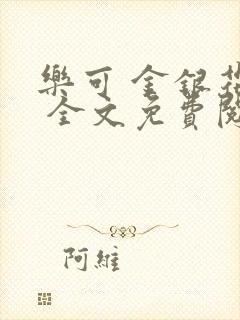 樂可 金銀花
全文免費閱
阿維